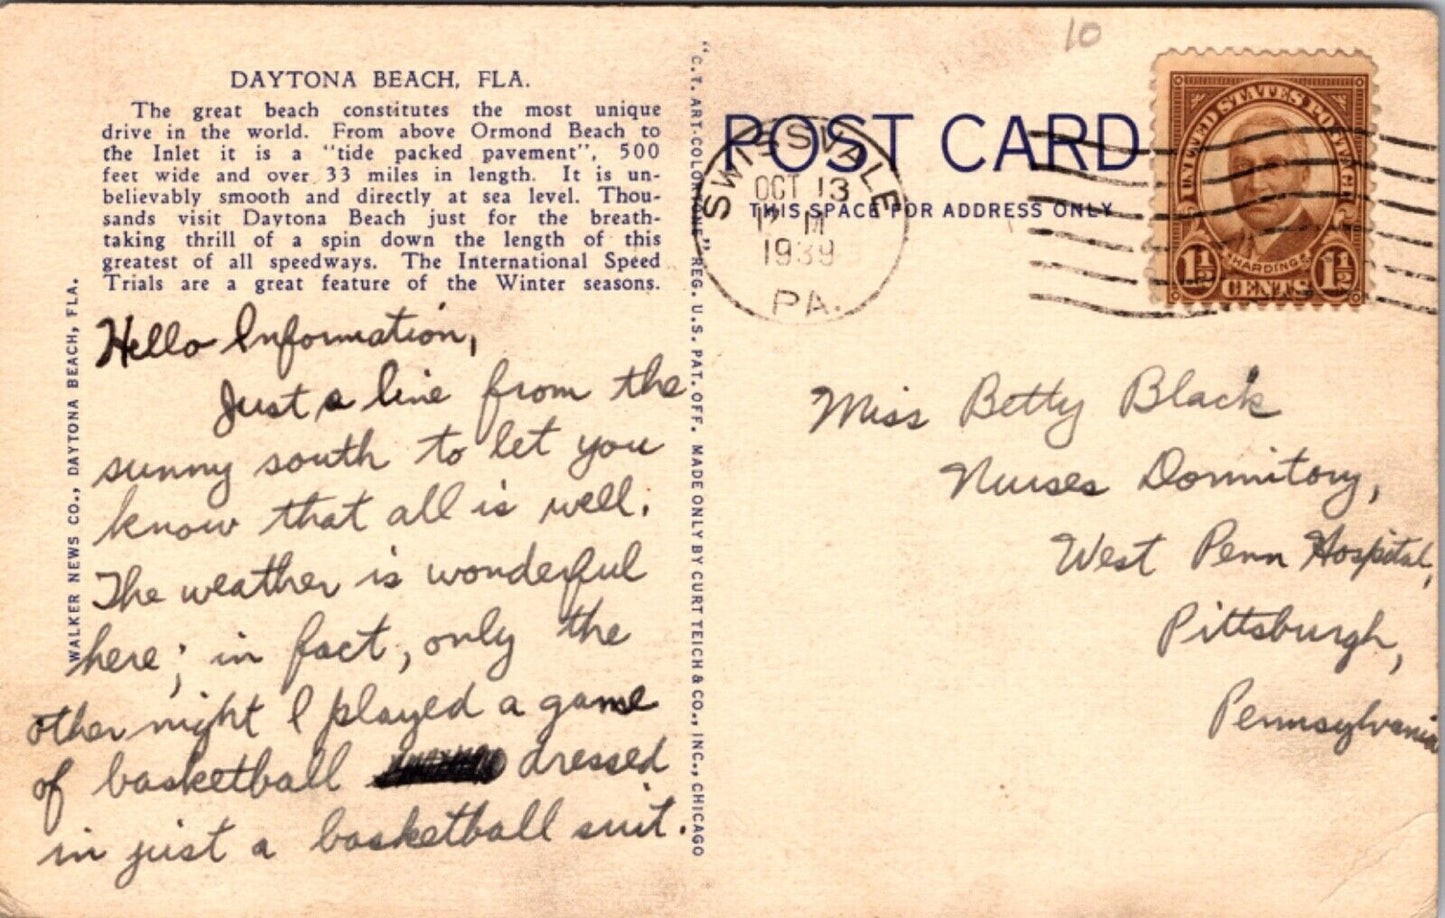 10
DAYTONA BEACH, FLA.
The great beach constitutes the most unique
drive in the world. From above Ormond Beach to
the Inlet it is a "tide packed pavement", 500
feet wide and over 33 miles in length. It is un-
believably smooth and directly at sea level. Thou-
sands visit Daytona Beach just for the breath-
taking thrill of a spin down the length of this
greatest of all speedways. The International Speed
Trials are a great feature of the Winter seasons.
WALKER NEWS CO., DAYTONA BEACH, FLA.
Hello Information,
Just a line from the
sunny south to let you
know that all is well.
The weather is wonderful
here; in fact, only the
other night I played a game
of basketball dressed
in just a basketball suit.
"C.T. ART-COLORTONE" REG. U.S. PAT. OFF. MADE ONLY BY CURT TEICH & CO., INC., CHICAGO
POST CARD
THIS SPACE FOR ADDRESS ONLY
SWISSVALE
OCT 13
12 M
1939
PA.
UNITED STATES POSTAGE
HARDING
1½ CENTS 1½
Miss Betty Black
Nurses Dormitory,
West Penn Hospital,
Pittsburgh,
Pennsylvania